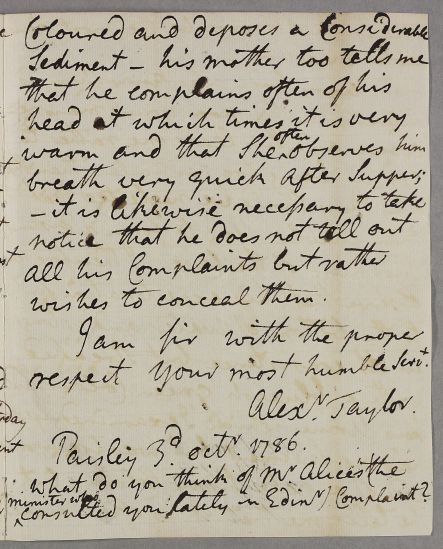 Coloured and deposes a Considerable
Sediment – his mother too tells me
that he complains often of his
head at which times it is very
warm and that She often observes him
breath very quick after Supper;
– it is likewise necessary to take
notice that he does not tell out
all his Complaints but rather
wishes to conceal them.
I am Sir with the proper
respect your most humble Servt.
Alexr. Taylor.
Paisley 3d octr. 1786.
what do you think of Mr. Alice's (the
minister who
consulted you lately in Edinr) Complaint?